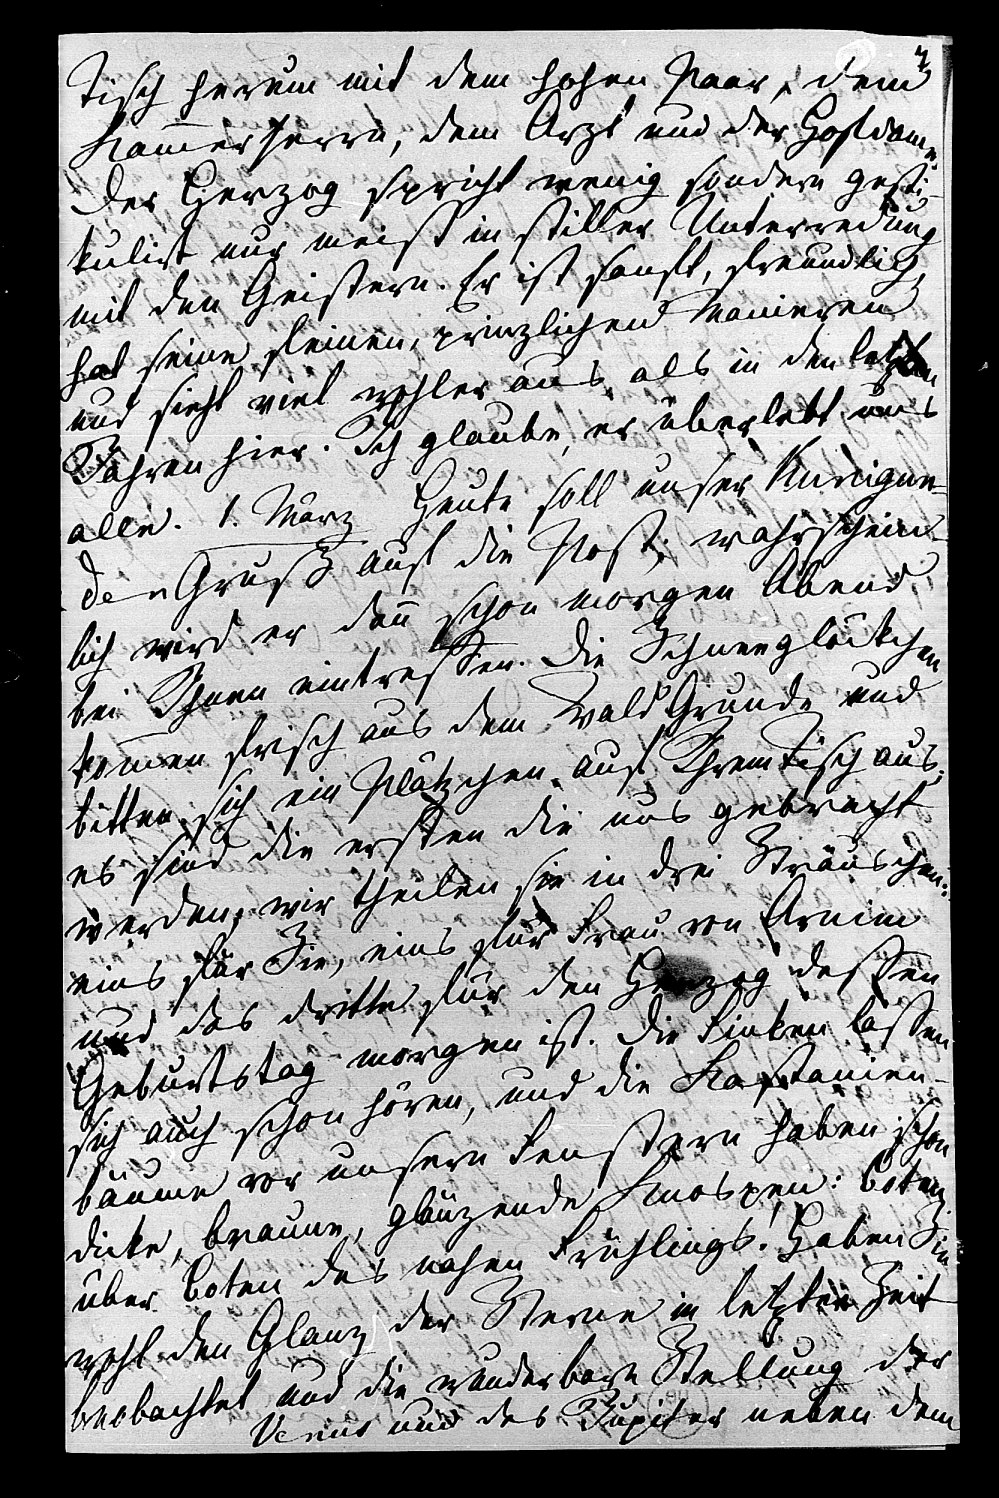 Tisch herum mit dem hohen Paar, dem
Kam̄erherrn, dem Arzt und der Hofdame.
Der Herzog spricht wenig sondern gesti-
kulirt nur meist in stiller Unterredung
mit den Geistern. Er ist sanft, freundlich,
hat seine feinen, prinzlichen Manieren
und sieht viel wohler aus, als in den letzten
Jahren hier. Ich glaube, er überlebt uns
alle. 1. März Heute soll unser
den Gruß auf die Post; wahrschein-
lich wird er dan̄ schon morgen Abend
bei Ihnen eintreffen. Die Schneeglöckchen
kom̄en frisch aus dem Wald Grunde und
bitten sich ein Plätzchen auf Ihrem Tisch aus;
es sind die ersten die uns gebracht
werden; wir theilen sie in drei Sträuschen:
eins für Sie, eins für Frau von Arnim
und das dritte für den Herzog dessen
Geburtstag morgen ist. Die Finken lassen
sich auch schon hören, und die Kastanien-
bäume vor unsern Fenstern haben schon
dicke, braune, glänzende Knospen: Boten
über Boten des nahen Frühlings! Haben Sie
wohl den Glanz der Sterne in letzter Zeit
beobachtet und die wunderbare Stellung der
Venus und des Jupiter neben dem